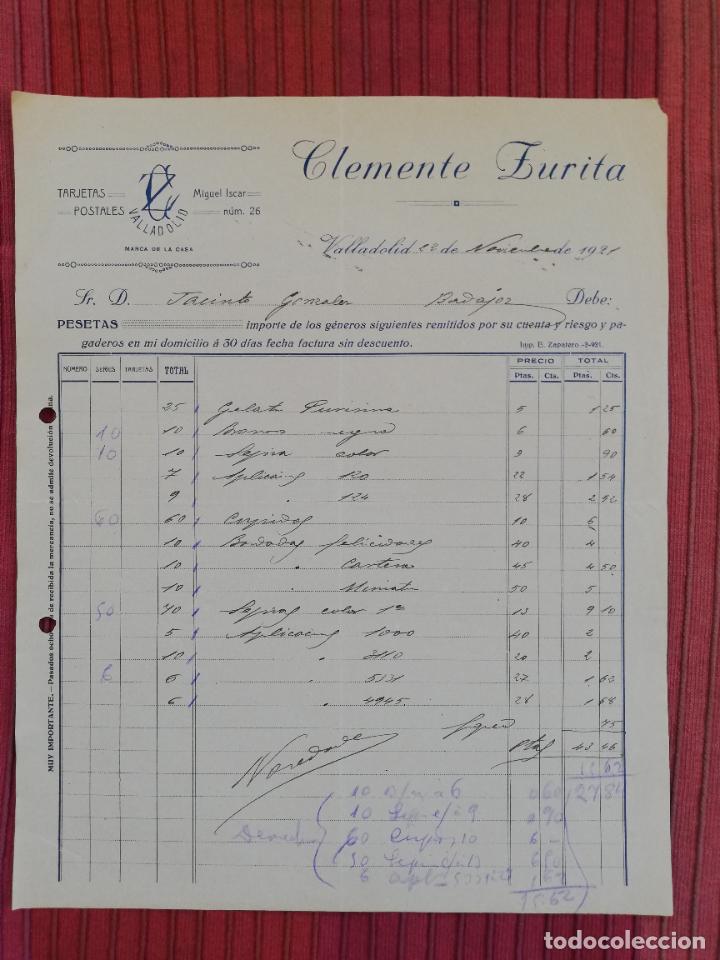 Clemente Zurita
TARJETAS POSTALES
CZ VALLADOLID
Miguel Iscar núm. 26
MARCA DE LA CASA
Valladolid 22 de Noviembre de 1921
Sr. D. Jacinto Gonzalez Badajoz Debe:
PESETAS importe de los géneros siguientes remitidos por su cuenta y riesgo y pa-
gaderos en mi domicilio á 30 días fecha factura sin descuento. Imp. E. Zapatero.-3-921.
NÚMERO SERIES TARJETAS TOTAL PRECIO TOTAL
Ptas. Cts. Ptas. Cts.
25 Gelat Purisima 5 1 25
10 10 negra 6 60
10 10 Sepia color 9 90
7 Aplicacing 120 22 1 54
9 " 124 28 2 52
60 60 Cupidos 10 6
10 Bordados felicidades 40 4
10 " Cartera 45 4 50
10 " Miniat 50 5
50 70 Sepias color 1ª 13 9 10
5 Aplicacing 1000 40 2
10 " 3110 20 2
6 6 " 5131 27 1 62
6 " 4945 28 1 68
75
Ptas 43 46
15 62
10 a 6 0 60 27 84
10 Sepi c/ a 9 0 90
60 Cupi a 10 6 -
50 Sepi 13 6 50
6 apl 5131 27 1 62
15.62
MUY IMPORTANTE.—Pasados ocho de recibida la mercancía, no se admite devolución
todocoleccion
todocoleccion.net